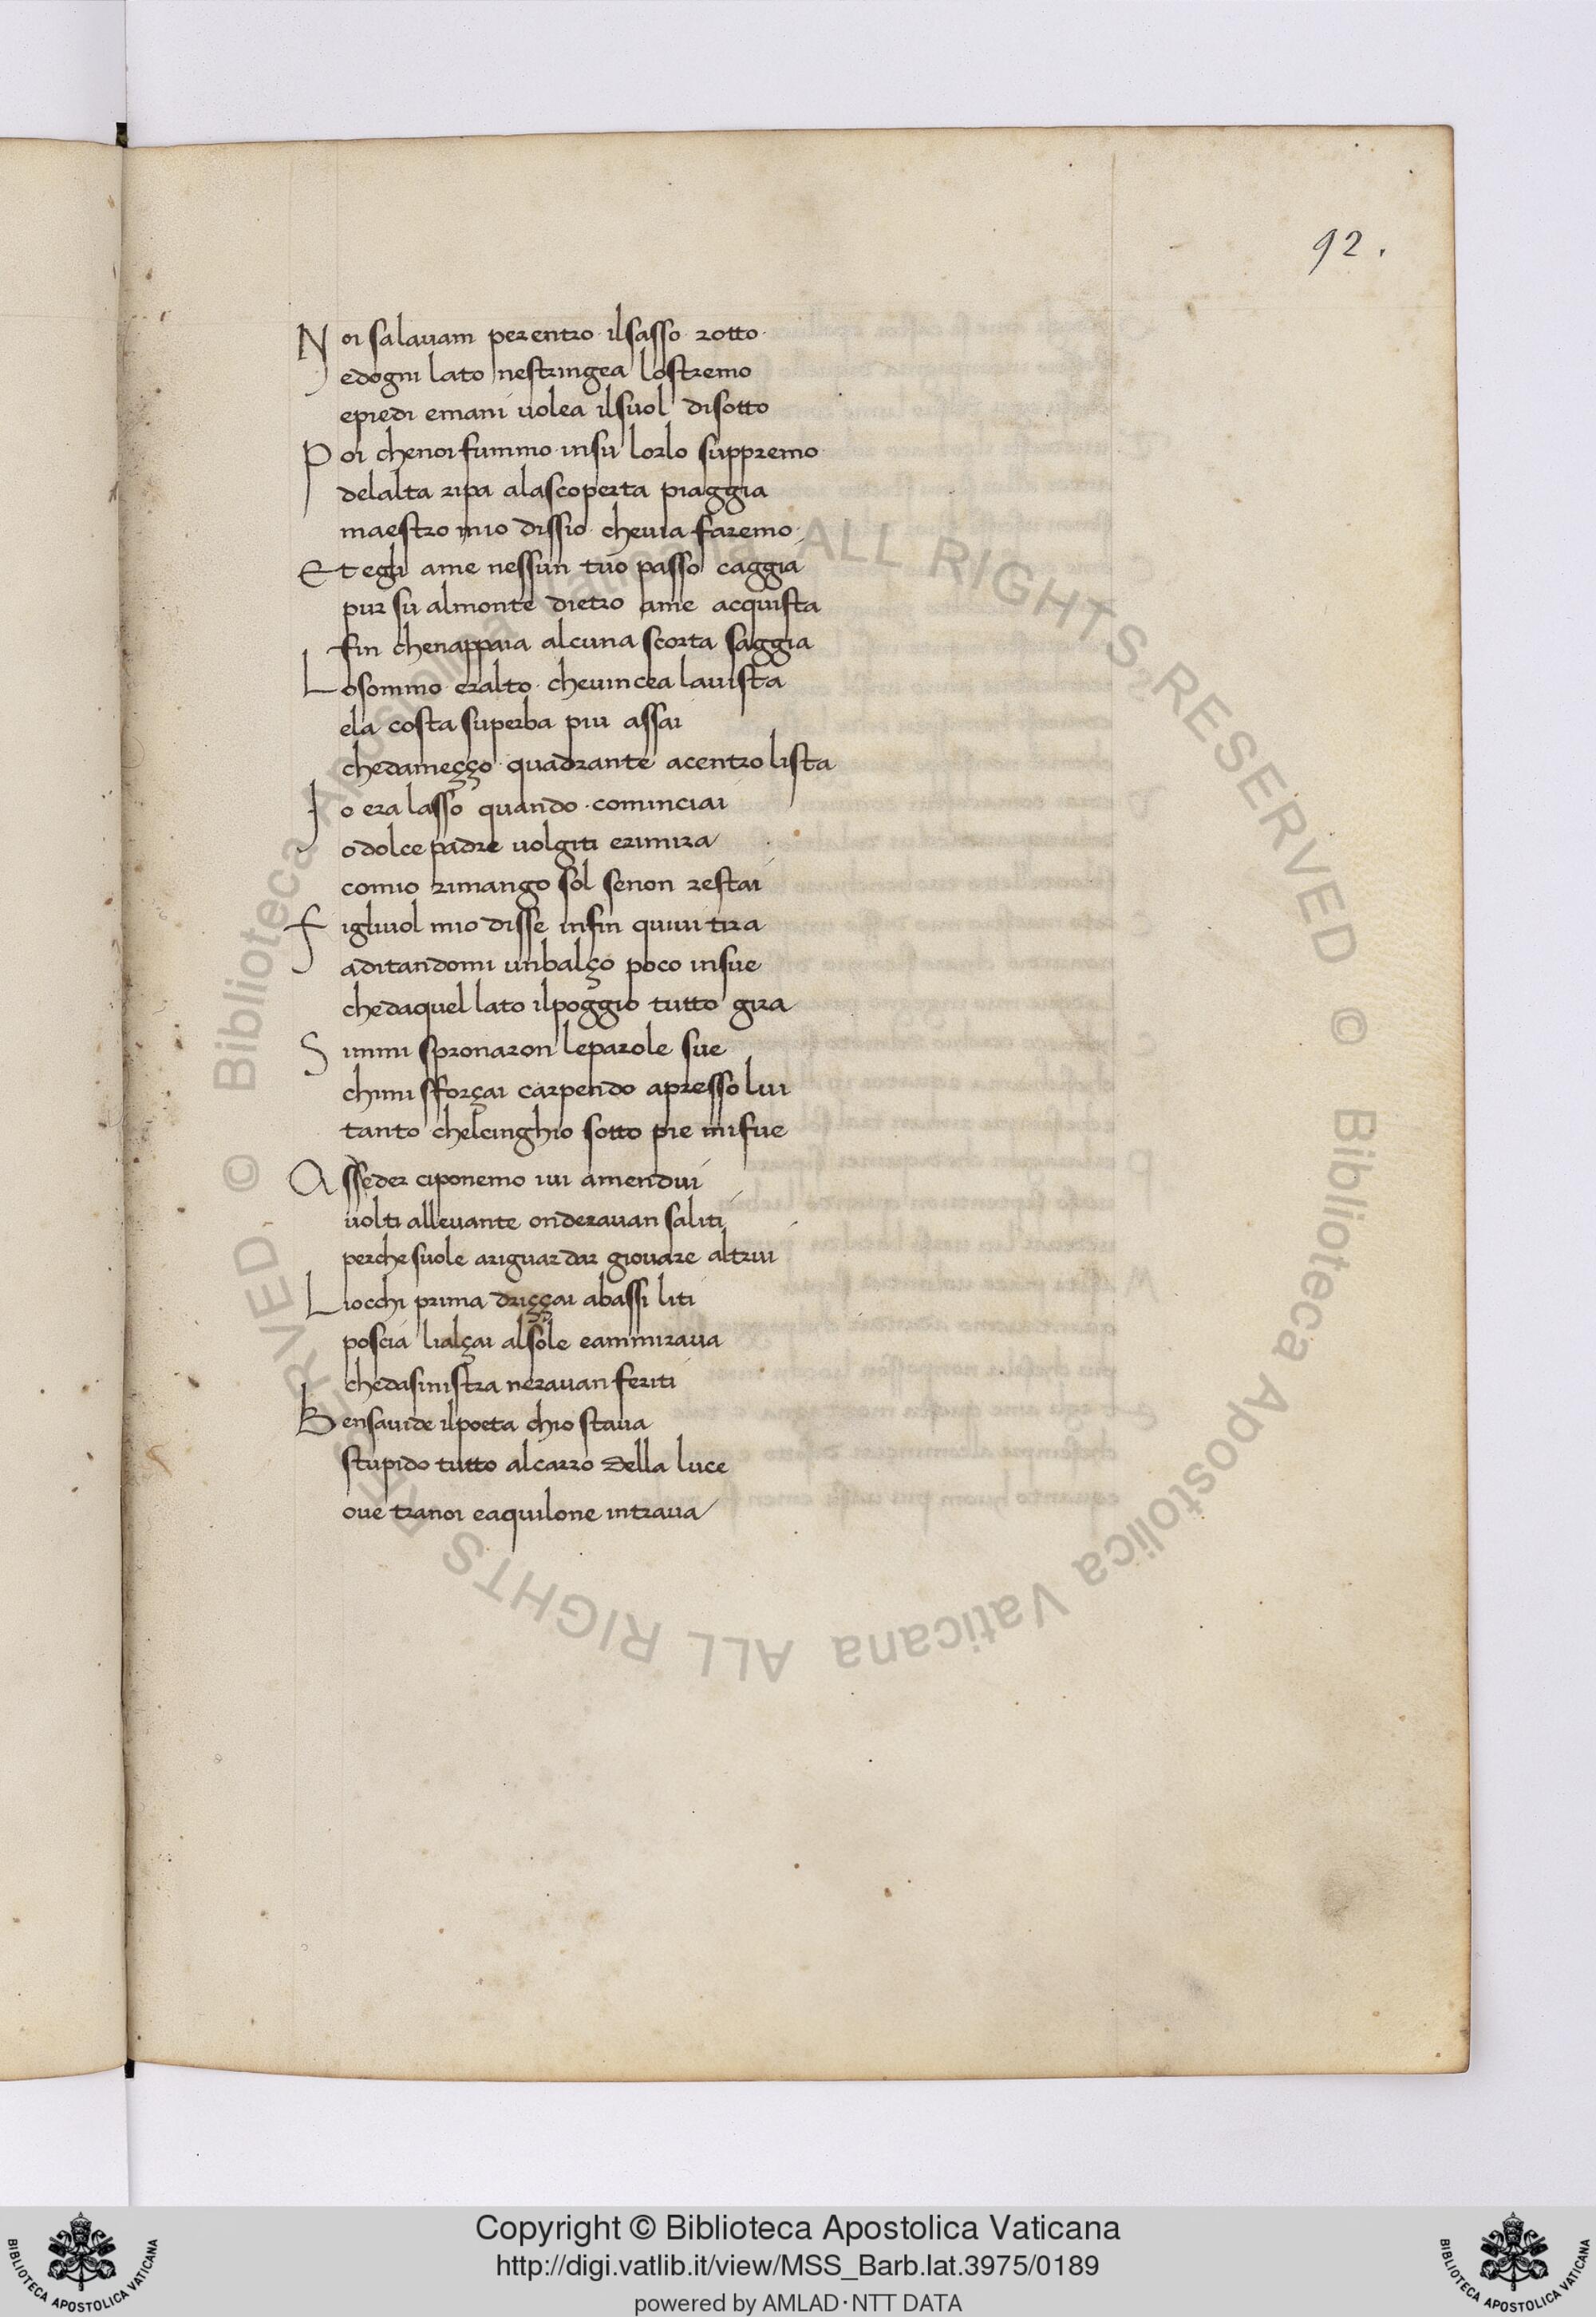 92.
Noi salauam perentro ilsasso rotto
edogni lato nestringea lostremo
epiedi emani uolea ilsuol disotto
Poi chenoi fummo insu lorlo suppremo
delalta ripa alascoperta piaggia
maestro mio dissio cheuia faremo
Et egli ame nessun tuo passo caggia
pur su almonte dietro ame acquista
fin chenappaia alcuna scorta saggia
Losommo eralto cheuincea lauista
ela costa superba piu assai
chedameçço quadrante acentro lista
Io era lasso quando cominciai
o dolce padre uolgiti erimira
comio rimango sol senon restai
figliuol mio disse infin quiui tira
aditandomi unbalço poco insue
chedaquel lato ilpoggio tutto gira
Simmi spronaron leparole sue
chimi sforçai carpendo apresso lui
tanto chelcinghio sotto pie mifue
Asseder ciponemo iui amendui
uolti alleuante onderauan saliti
perche suole ariguardar giouare altrui
Liocchi prima driççai abassi liti
poscia lialçai alsole eammiraua
chedasinistra nerauan feriti
Bensauide ilpoeta chio staua
stupido tutto alcarro della luce
oue tranoi eaquilone intraua
© Biblioteca Apostolica Vaticana ALL RIGHTS RESERVED © Biblioteca Apostolica Vaticana ALL RIGHTS RESERVED
Copyright © Biblioteca Apostolica Vaticana
http://digi.vatlib.it/view/MSS_Barb.lat.3975/0189
powered by AMLAD·NTT DATA
BIBLIOTECA APOSTOLICA VATICANA
BIBLIOTECA APOSTOLICA VATICANA